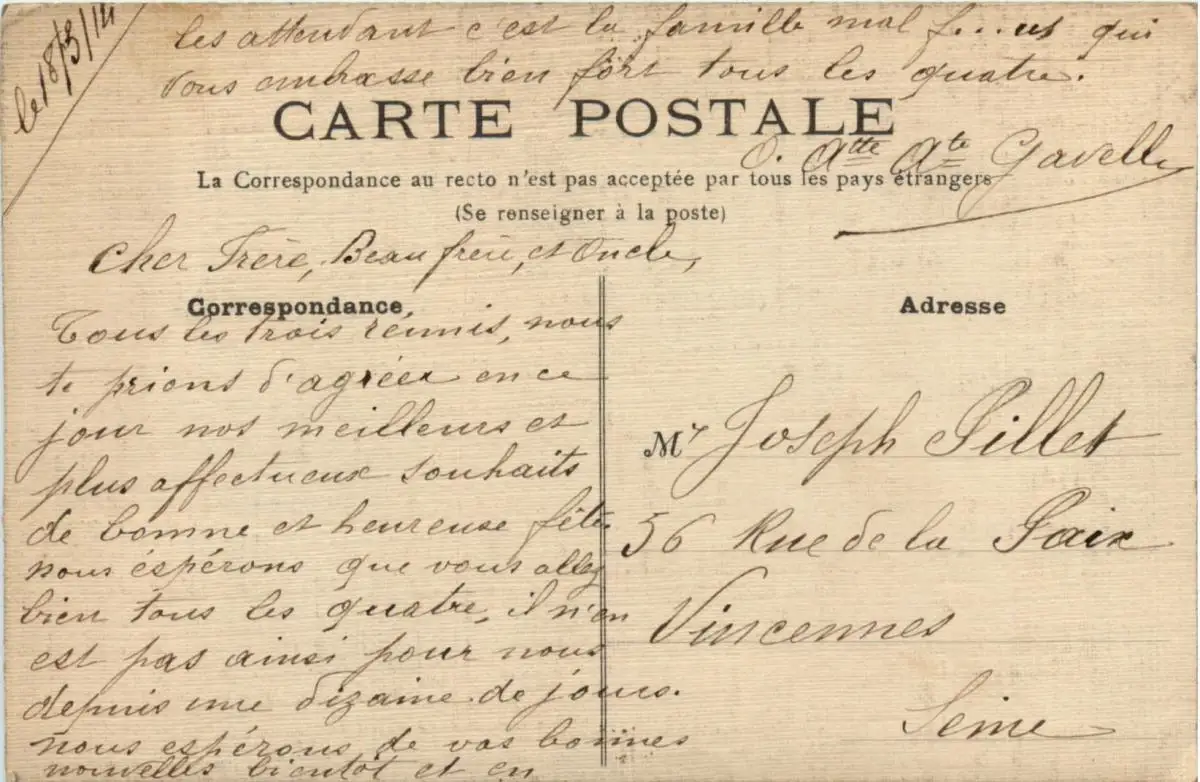 le 18/3/14
CARTE POSTALE
La Correspondance au recto n'est pas acceptée par tous les pays étrangers
(Se renseigner à la poste)
Correspondance
Cher Frère, Beau frère, et Oncle,
Tous les trois réunis, nous
te prions d'agréer en ce
jour nos meilleurs et
plus affectueux souhaits
de bonne et heureuse fête
nous éspérons que vous allez
bien tous les quatre, il n'en
est pas ainsi pour nous
depuis une dizaine de jours.
nous espérons de vos bonnes
nouvelles bientôt et en
les attendant c'est la famille mal f...ut qui
vous embrasse bien fort tous les quatre.
O. Atte Ate Gavelle
Adresse
Mr Joseph Pillet
56 Rue de la Paix
Vincennes
Seine